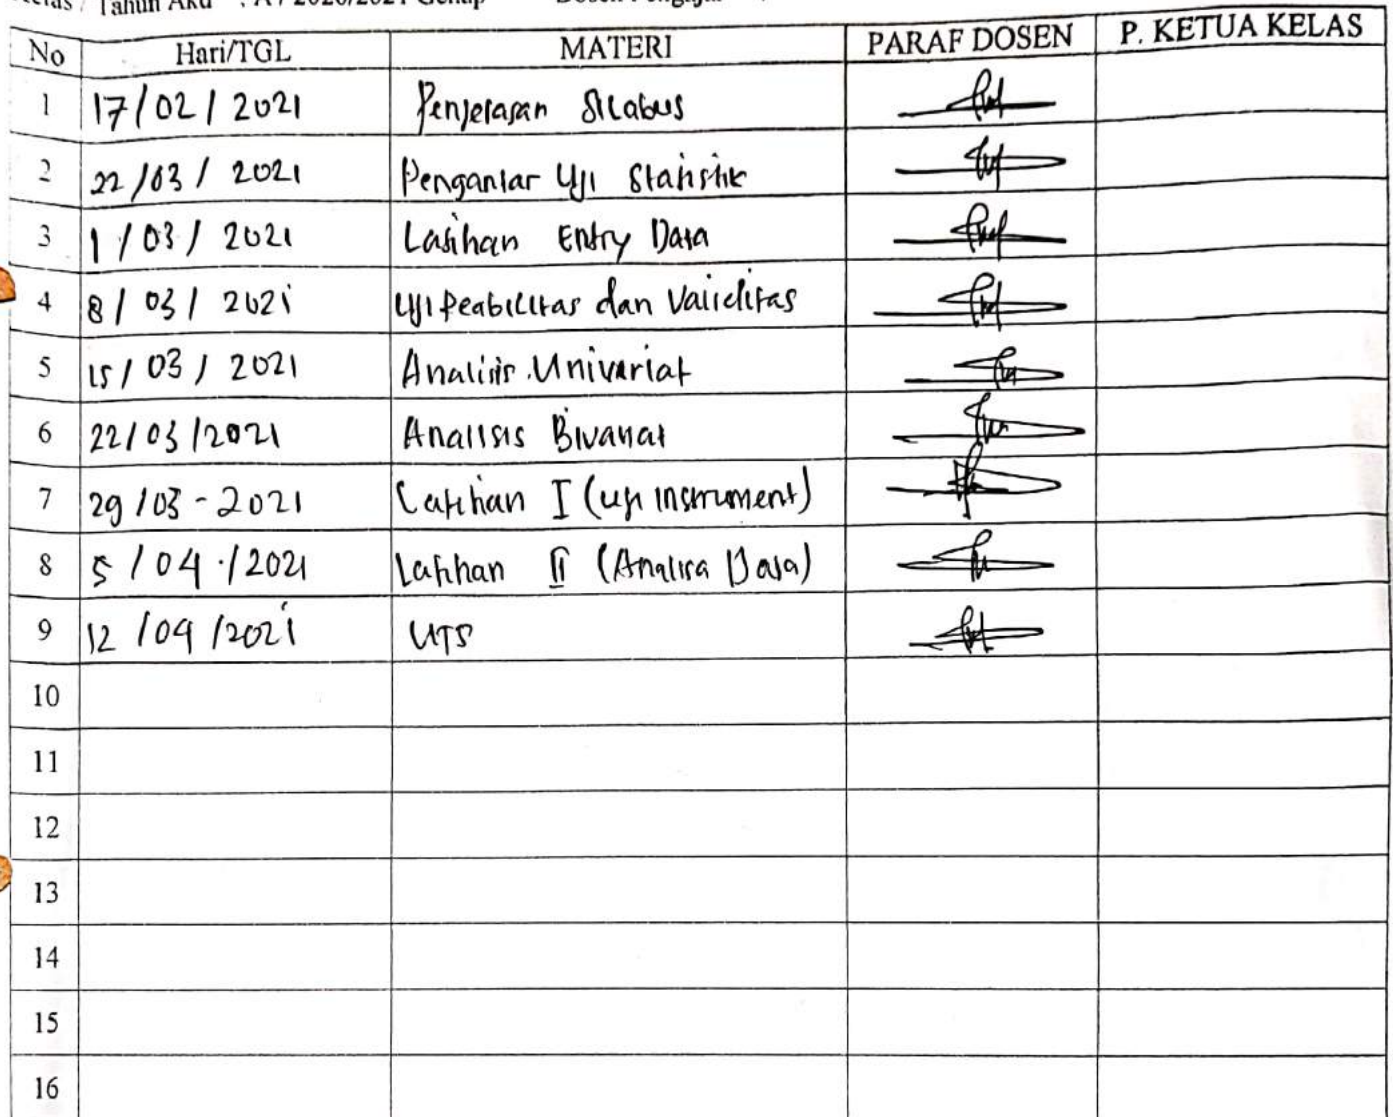 Kelas / Tahun Aku : A / 2020/2021 Genap Dosen Pengajar
No Hari/TGL MATERI PARAF DOSEN P. KETUA KELAS
1 17/02/2021 Penjelasan Silabus
2 22/03/2021 Pengantar Uji Statistik
3 1/03/2021 Latihan Entry Data
4 8/03/2021 Uji Reabilitas dan Validitas
5 15/03/2021 Analisis Univariat
6 22/03/2021 Analisis Bivariat
7 29/03-2021 Latihan I (uji instrument)
8 5/04/2021 Latihan II (Analisa Data)
9 12/04/2021 UTS
10
11
12
13
14
15
16